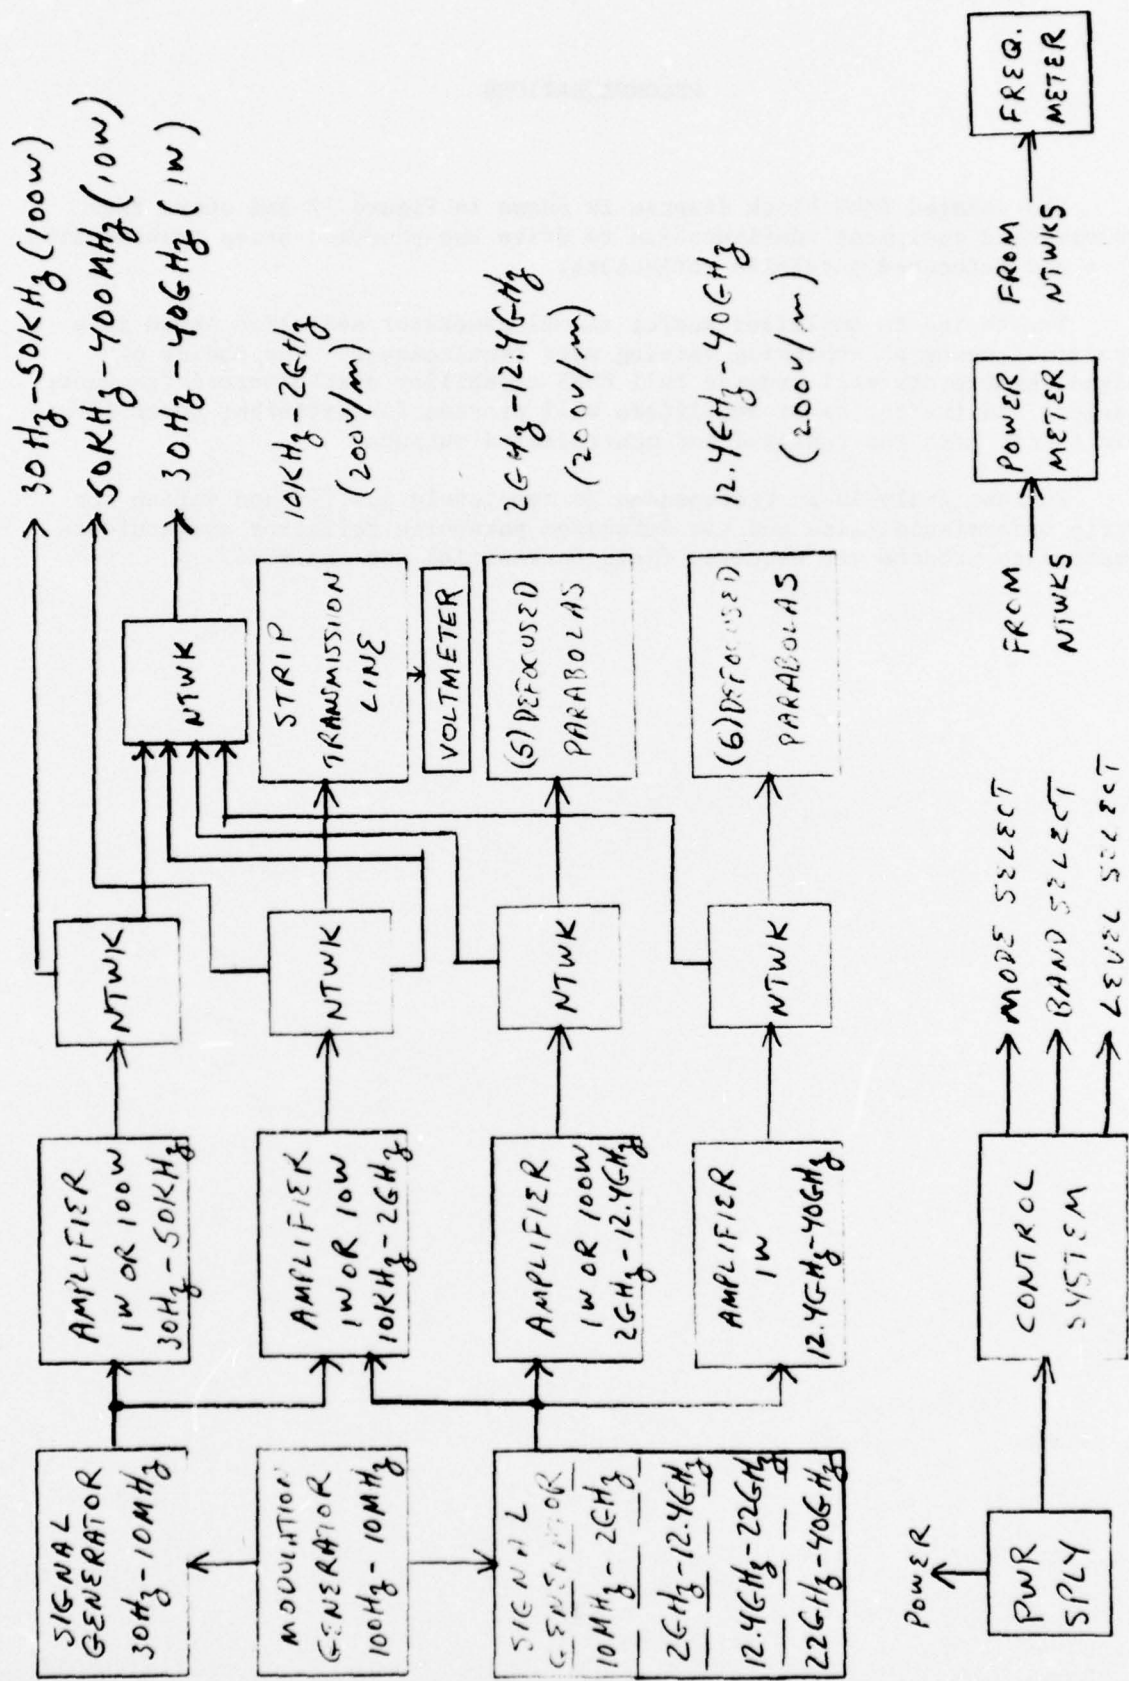 SIGNAL
GENERATOR
30Hz - 10MHz
MODULATION
GENERATOR
100Hz - 10MHz
SIGNAL
GENERATOR
10MHz - 2GHz
2GHz - 12.4GHz
12.4GHz - 22GHz
22GHz - 40GHz
AMPLIFIER
1W OR 100W
30Hz - 50KHz
AMPLIFIER
1W OR 10W
10KHz - 2GHz
AMPLIFIER
1W OR 100W
2GHz - 12.4GHz
AMPLIFIER
1W
12.4GHz - 40GHz
NTWK
NTWK
NTWK
NTWK
NTWK
STRIP
TRANSMISSION
LINE
VOLTMETER
(5) DEFOCUSED
PARABOLAS
(6) DEFOCUSED
PARABOLAS
30Hz - 50KHz (100W)
50KHz - 400MHz (10W)
30Hz - 40GHz (1W)
10KHz - 2GHz
(200V/m)
2GHz - 12.4GHz
(200V/m)
12.4GHz - 40GHz
(200V/m)
POWER
PWR
SPLY
CONTROL
SYSTEM
MODE SELECT
BAND SELECT
LEVEL SELECT
FROM
NTWKS
POWER
METER
FROM
NTWKS
FREQ.
METER